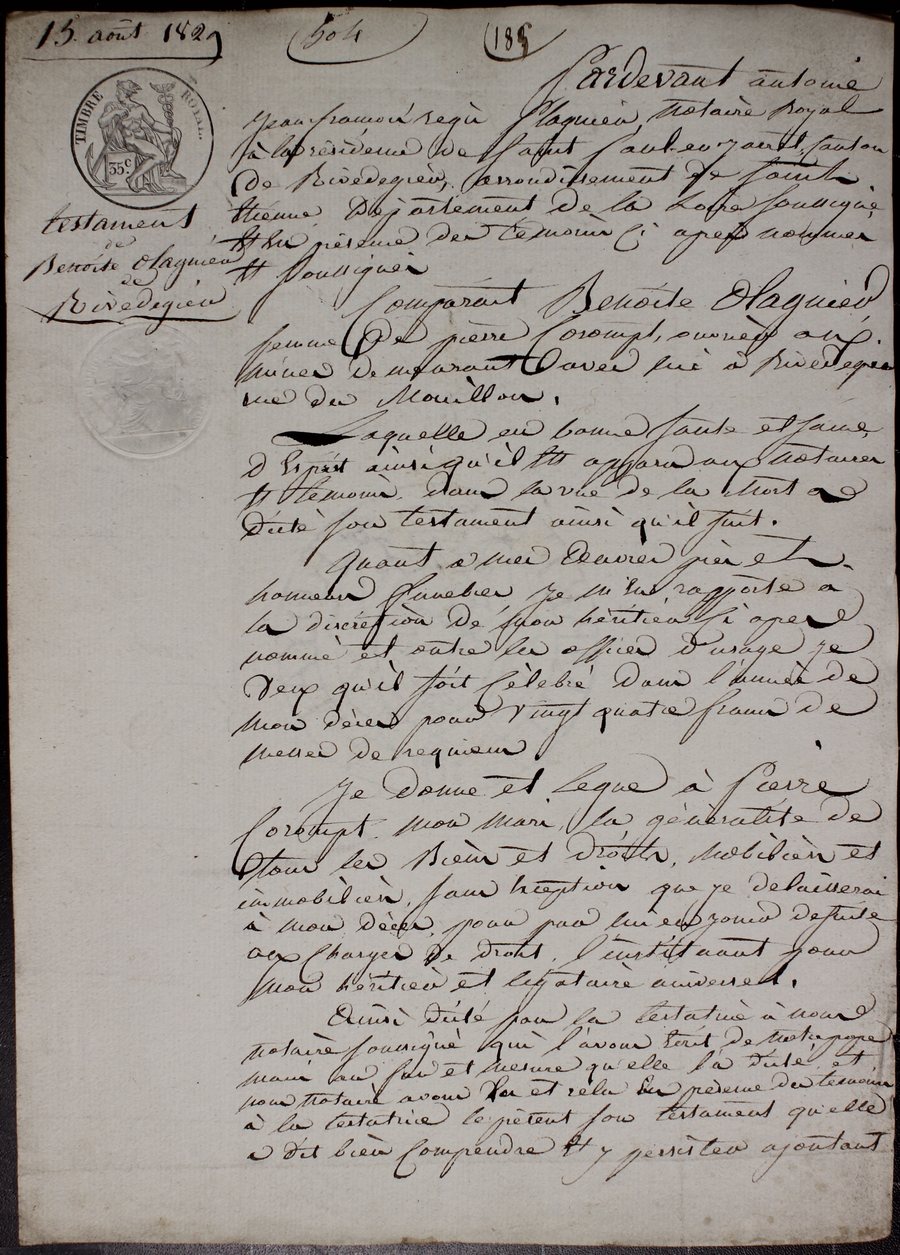 15. août 1829
504
185
TIMBRE ROYAL
35c
testament
de
Benoite Olagnier
de
Rivedegier
Pardevant antoine
Jean françois régis Olagnier, Notaire Royal
à la résidence de Saint Paul en jarret, canton
de Rivedegier, arrondissement de Saint
Etienne Département de la Loire soussigné
Et En présence des témoins Ci après nommés
Et soussignés
Comparait Benoite Olagnier
femme de pierre Corompt, ouvrier aux
mines demeurant avec lui à Rivedegier
rue du Mouillon.
Laquelle en bonne santé et saine
d'Esprit ainsi qu'il Est apparu aux Notaire
Et témoins, dans la vue de la Mort a
dicté son testament ainsi qu'il suit.
Quant à mes Œuvres pies et
honneurs funèbres Je m'En rapporte à
la discrétion de mon héritier Ci après
nommé et outre les offices d'usage je
veux qu'il soit Célébré dans l'année de
mon décès pour vingt quatre francs de
messes de requiem
Je donne et Legue à Pierre
Corompt mon mari, la généralité de
tous les Biens et droits, Mobiliers et
immobiliers, sans Exception que je delaisserai
à mon décès, pour par lui en jouir de suite
aux Charges de droit, l'instituant pour
mon héritier et légataire universel.
Ainsi dicté par la testatrice à nous
Notaire soussigné qui l'avons Ecrit de Notre propre
main au fur et mesure qu'elle l'a dicté, et
nous Notaire avons lu et relu En présence des témoins
à la testatrice le présent son testament qu'elle
a dit bien Comprendre Et y persister ajoutant